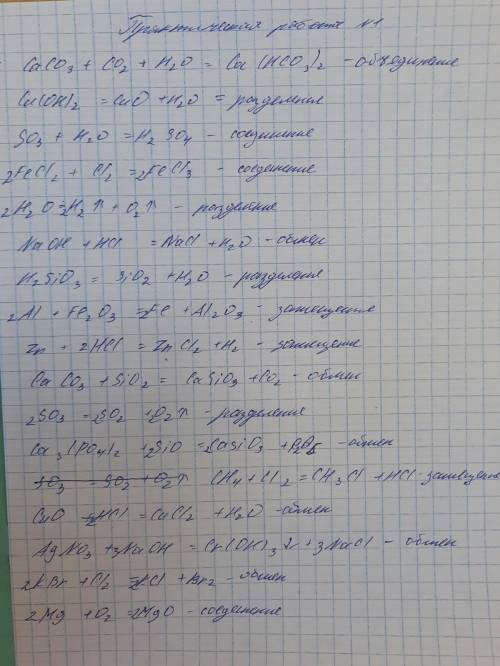 Практическая работа №1
CaCO3 + CO2 + H2O = Ca(HCO3)2 - объединение
Cu(OH)2 = CuO + H2O = разделения
SO3 + H2O = H2SO4 - соединение
2FeCl2 + Cl2 = 2FeCl3 - соединение
2H2O = 2H2↑ + O2↑ - разделение
NaOH + HCl = NaCl + H2O - обмен
H2SiO3 = SiO2 + H2O - разделения
2Al + Fe2O3 = 2Fe + Al2O3 - замещения
Zn + 2HCl = ZnCl2 + H2 - замещение
CaCO3 + SiO2 = CaSiO3 + CO2 - обмен
2SO3 = 2SO2 + O2↑ - разделения
Ca3(PO4)2 + 3SiO = 3CaSiO3 + P2O5 - обмен
SO3 = SO2 + O2↑ CH4 + Cl2 = CH3Cl + HCl - замещение
CuO + 2HCl = CuCl2 + H2O - обмен
AgNO3 + 3NaOH = Cr(OH)3↓ + 3NaCl - обмен
2KBr + Cl2 = 2KCl + Br2 - обмен
2Mg + O2 = 2MgO - соединение